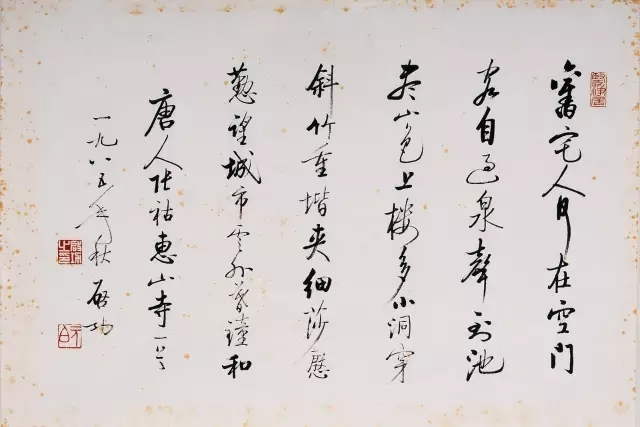 舊宅人何在空門
客自過泉聲到池
盡山色上樓多小洞穿
斜竹重堦夾細莎慇
懃望城市雲外暮鐘和
唐人張祜惠山寺一首
一九八五年秋 啓功